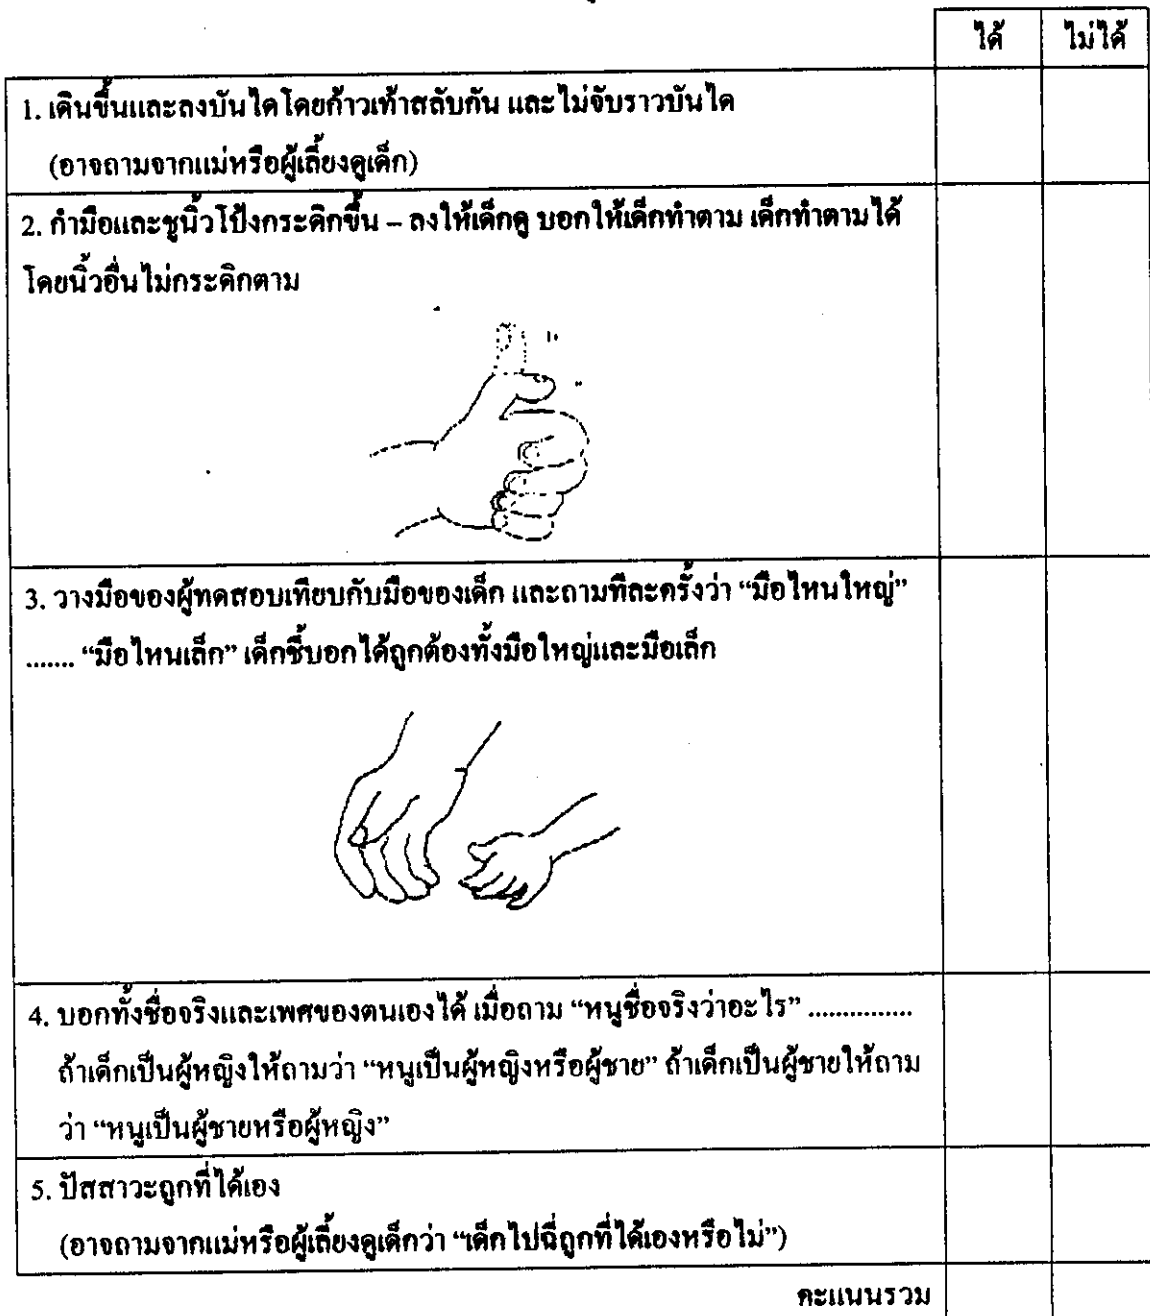 ได้ ไม่ได้
1. เดินขึ้นและลงบันไดโดยก้าวเท้าสลับกัน และไม่จับราวบันได
(อาจถามจากแม่หรือผู้เลี้ยงดูเด็ก)
2. กำมือและชูนิ้วโป้งกระดิกขึ้น – ลงให้เด็กดู บอกให้เด็กทำตาม เด็กทำตามได้
โดยนิ้วอื่นไม่กระดิกตาม
3. วางมือของผู้ทดสอบเทียบกับมือของเด็ก และถามทีละครั้งว่า “มือไหนใหญ่”
....... “มือไหนเล็ก” เด็กชี้บอกได้ถูกต้องทั้งมือใหญ่และมือเล็ก
4. บอกทั้งชื่อจริงและเพศของตนเองได้ เมื่อถาม “หนูชื่อจริงว่าอะไร” ...............
ถ้าเด็กเป็นผู้หญิงให้ถามว่า “หนูเป็นผู้หญิงหรือผู้ชาย” ถ้าเด็กเป็นผู้ชายให้ถาม
ว่า “หนูเป็นผู้ชายหรือผู้หญิง”
5. ปัสสาวะถูกที่ได้เอง
(อาจถามจากแม่หรือผู้เลี้ยงดูเด็กว่า “เด็กไปฉี่ถูกที่ได้เองหรือไม่”)
คะแนนรวม